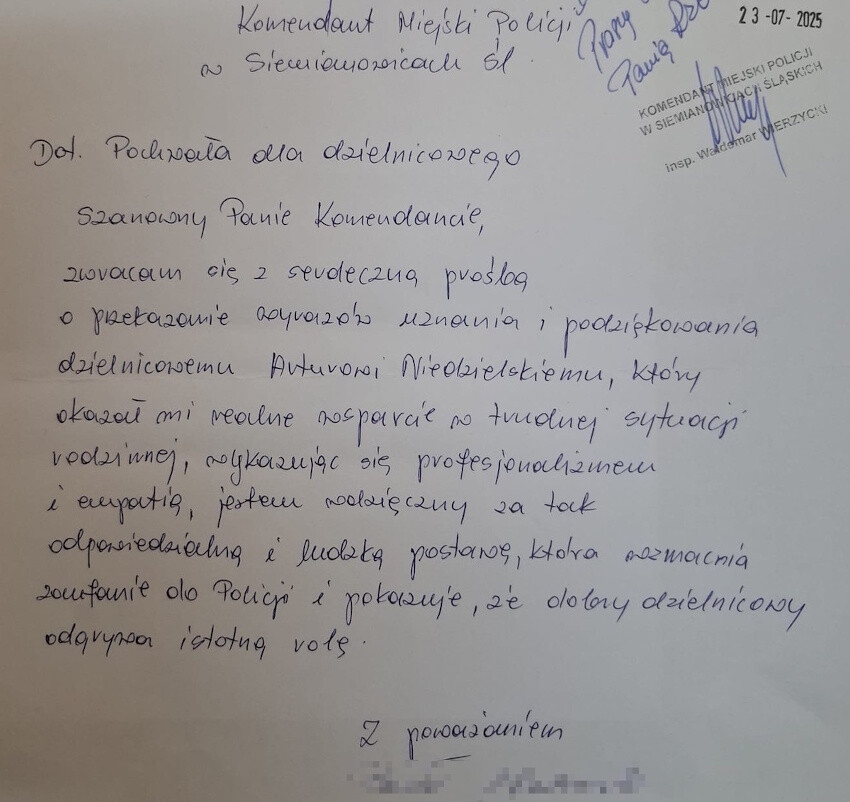 Komendant Miejski Policji
w Siemianowicach Śl.
Proszę
Panią
23-07-2025
KOMENDANT MIEJSKI POLICJI
W SIEMIANOWICACH ŚLĄSKICH
insp. Waldemar WIERZYCKI
Dot. Pochwała dla dzielnicowego
Szanowny Panie Komendancie,
zwracam się z serdeczną prośbą
o przekazanie wyrazów uznania i podziękowania
dzielnicowemu Arturowi Niedzielskiemu, który
okazał mi realne wsparcie w trudnej sytuacji
rodzinnej, wykazując się profesjonalizmem
i empatią, jestem wdzięczny za tak
odpowiedzialną i ludzką postawę, która wzmacnia
zaufanie do Policji i pokazuje, że dobry dzielnicowy
odgrywa istotną rolę.
Z poważaniem